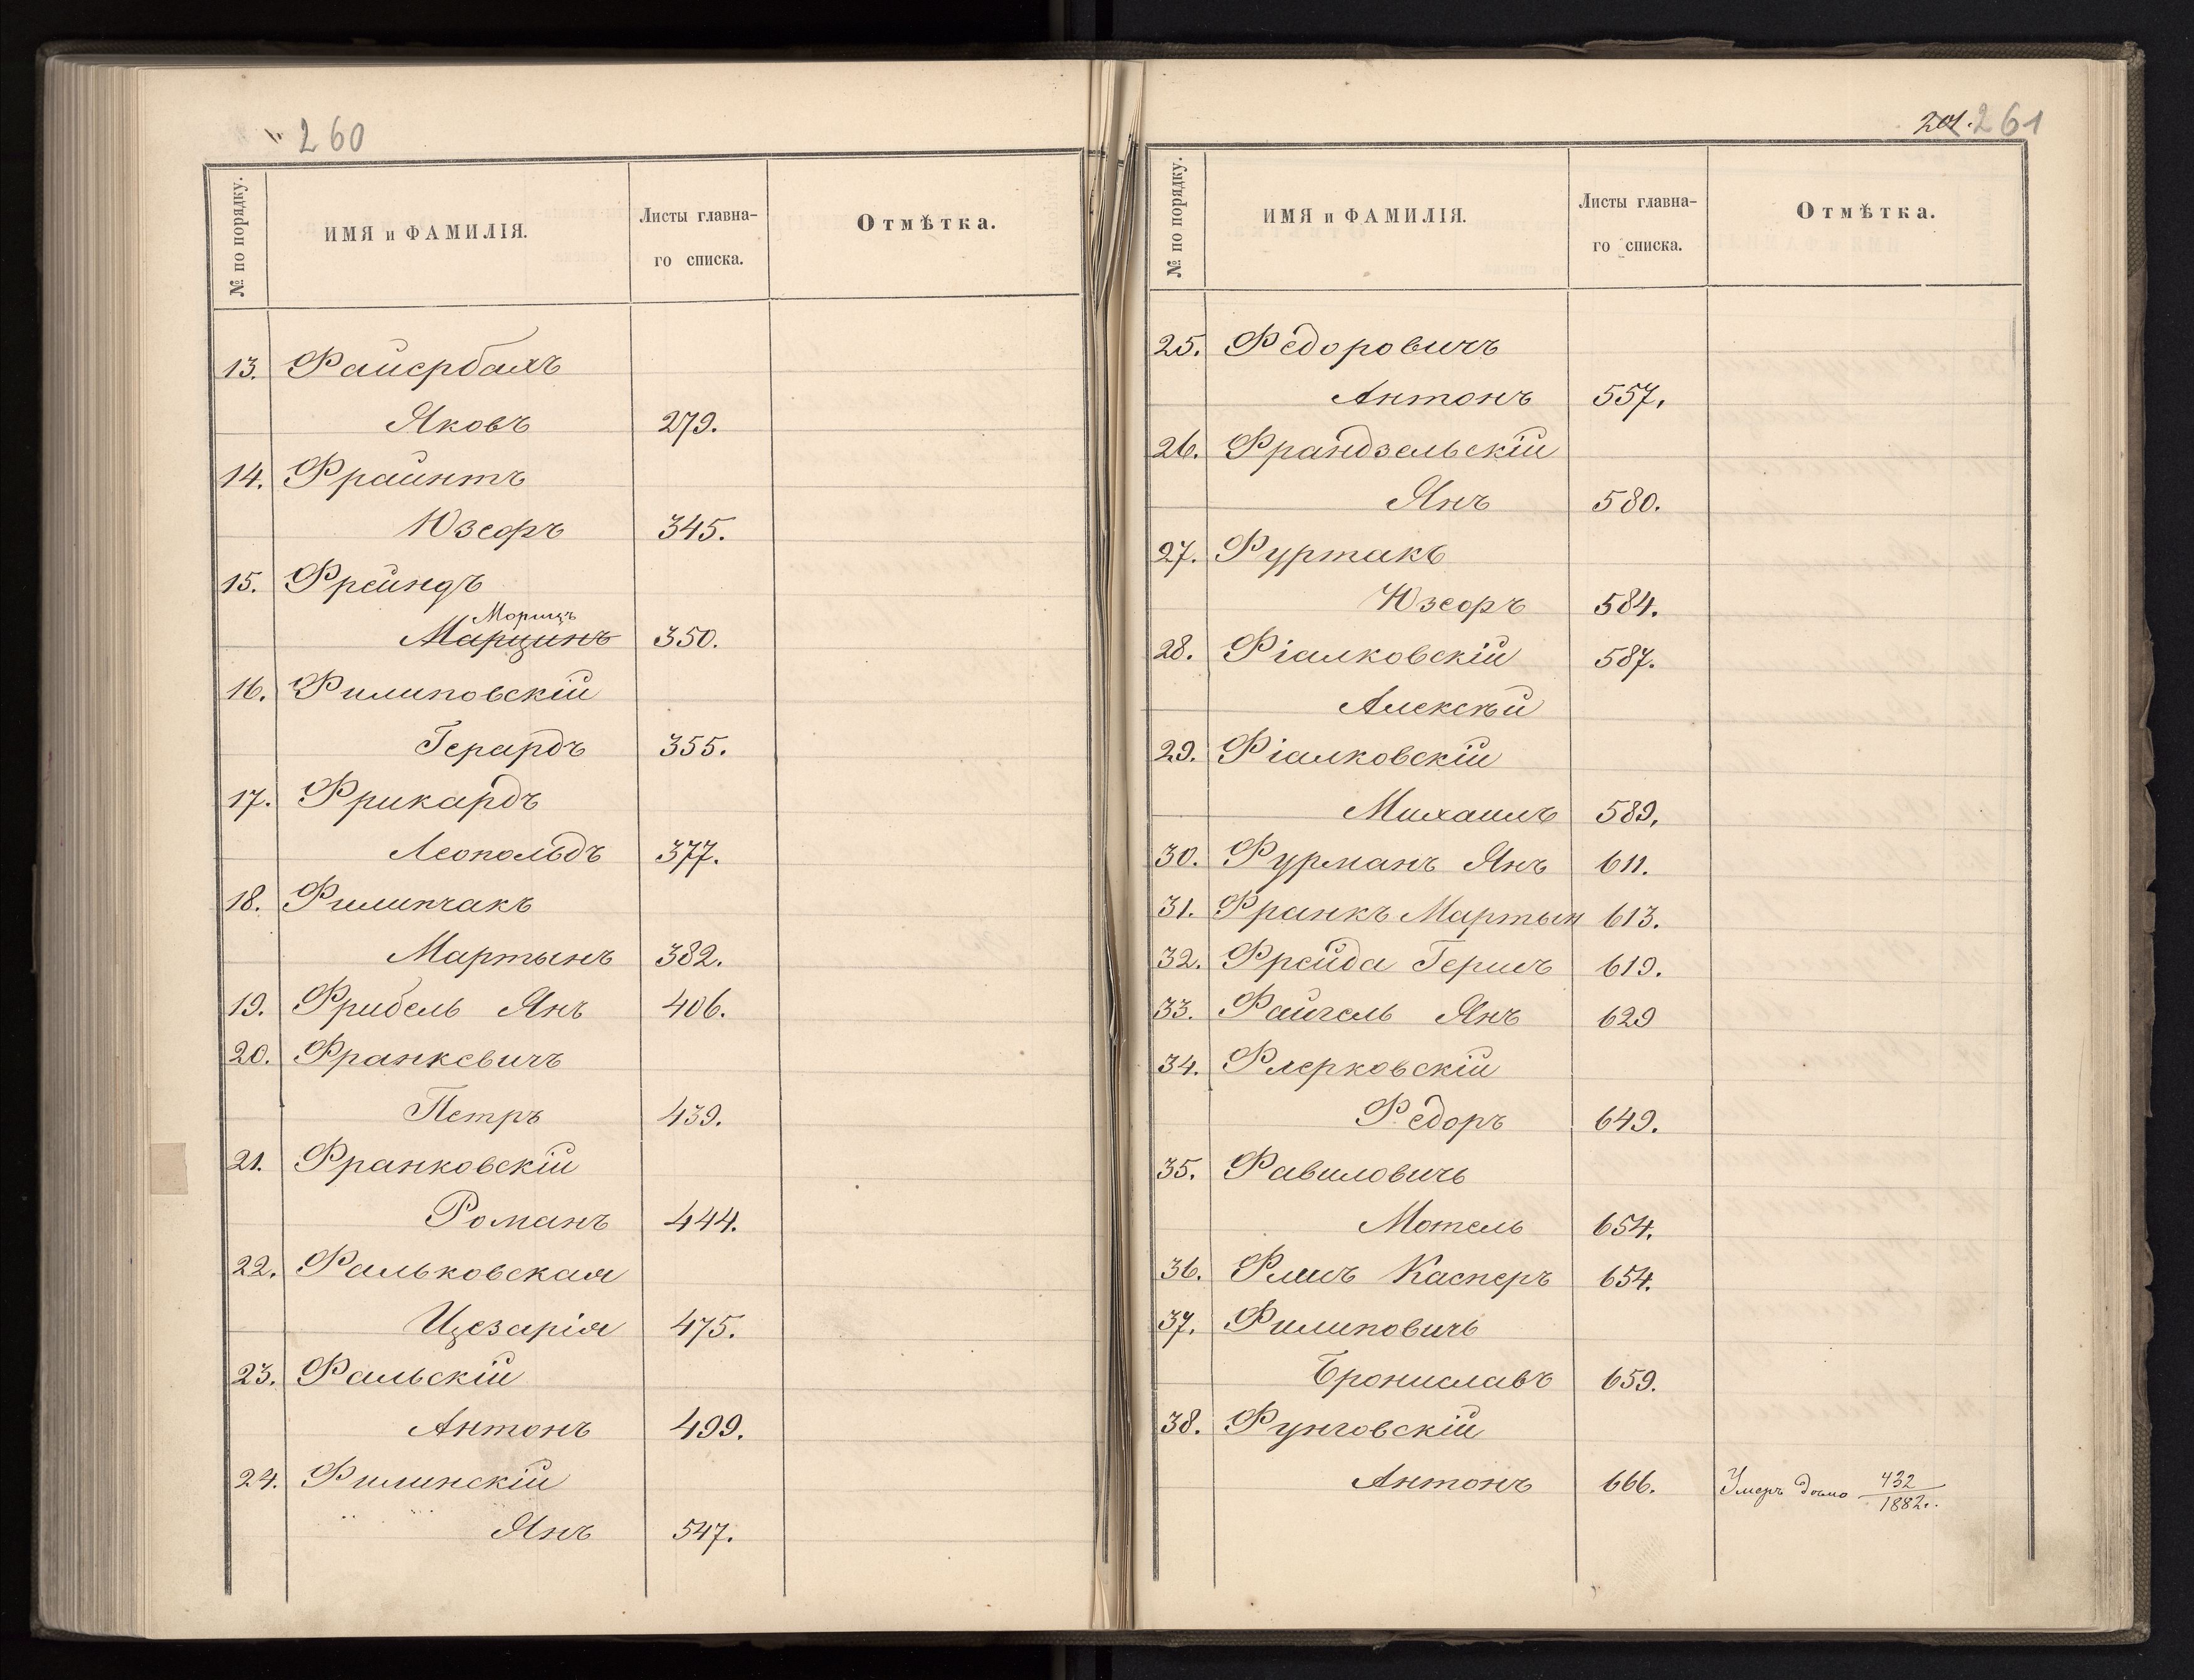 260
№ по порядку. ИМЯ и ФАМИЛІЯ. Листы главна-го списка. Отмѣтка.
13. Файербахъ
Яковъ 279.
14. Фраинтъ
Юзефъ 345.
15. Фрейндъ
Морицъ
Марцинъ 350.
16. Филиповскій
Герардъ 355.
17. Фрикардъ
Леопольдъ 377.
18. Филипчакъ
Мартынъ 382.
19. Фрибель Янъ 406.
20. Франкевичъ
Петръ 439.
21. Франковскій
Романъ 444.
22. Фальковская
Цезарія 475.
23. Фальскій
Антонъ 499.
24. Филинскій
Янъ 547.
201. 261
№ по порядку. ИМЯ и ФАМИЛІЯ. Листы главна-го списка. Отмѣтка.
25. Федоровичъ
Антонъ 557.
26. Франдзельскій
Янъ 580.
27. Фуртакъ
Юзефъ 584.
28. Фіалковскій 587.
Алексѣй
29. Фіалковскій
Михаилъ 589.
30. Фурманъ Янъ 611.
31. Франкъ Мартын 613.
32. Фрейда Гершъ 619.
33. Файгель Янъ 629
34. Флерковскій
Федоръ 649.
35. Фавиловичъ
Мотель 654.
36. Флисъ Касперъ 654.
37. Филиповичъ
Брониславъ 659.
38. Фунговскій
Антонъ 666. Умеръ дѣло 432/1882г.